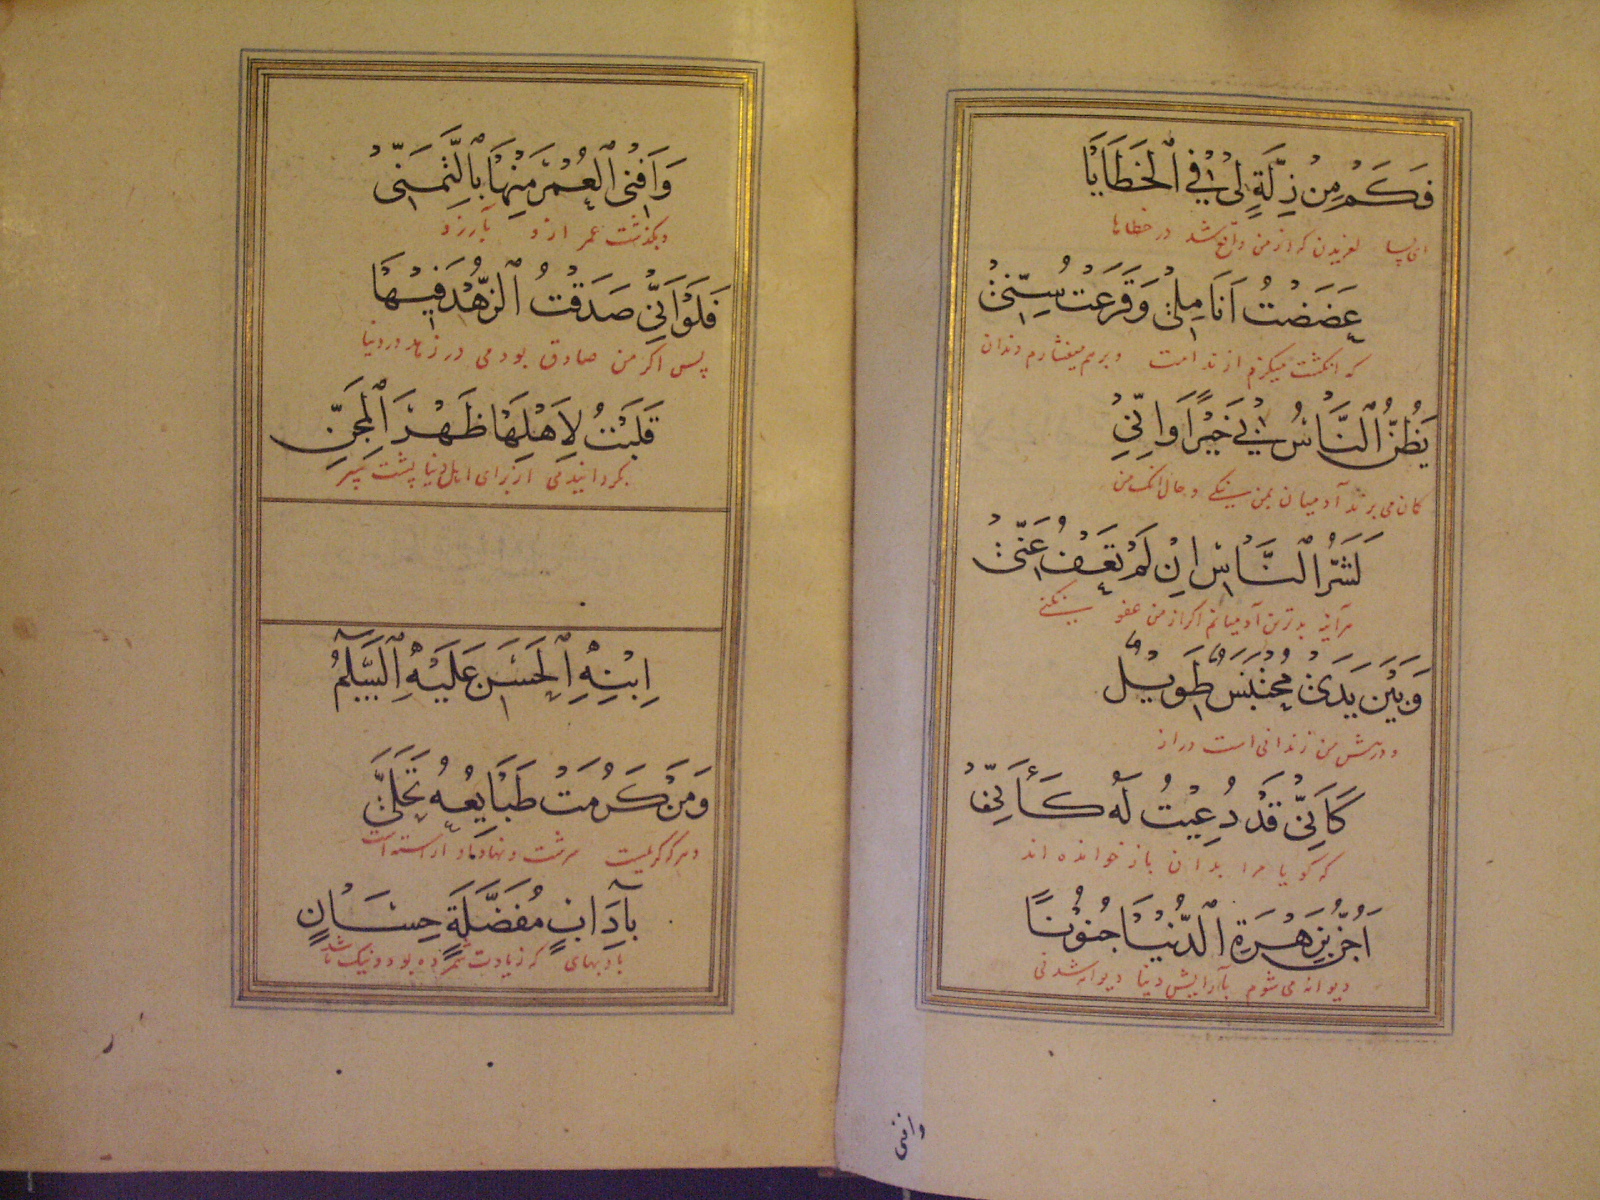 فَكَمْ مِنْ زِلَّةٍ لِيْ فِي الْخَطَايَا
ای بسا لغزیدن که از من واقع شد در خطاها
عَضَضْتُ اَنَامِلِيْ وَقَرَعْتُ سِنِّيْ
که انگشت میگزم از ندامت و برهم میفشارم دندان
يَظُنُّ النَّاسُ بِيْ خَيْرًا وَاِنِّيْ
گمان می برند آدمیان بمن نیکی و حال آنکه من
لَشَرُّ النَّاسِ اِنْ لَمْ تَعْفُ عَنِّيْ
هر آینه بدترین آدمیانم اگر از من عفو نکنی
وَبَيْنَ يَدَيَّ مُحْتَبَسٌ طَوِيْلٌ
و در پیش من زندانی است دراز
كَاَنِّيْ قَدْ دُعِيْتُ لَهُ كَأَنِّيْ
که گویا مرا بدان باز خوانده اند
اُجَنُّ بِزَهْرَةِ الدُّنْيَا جُنُوْنًا
دیوانه می شوم بآرایش دنیا دیوانه شدنی
وافنی
وَاَفْنِي الْعُمْرَ مِنْهَا بِالتَّمَنِّيْ
و بگذشت عمر ازو بآرزو
فَلَوْ اَنِّيْ صَدَقْتُ الزُّهْدَ فِيْهَا
پس اگر من صادق بودمی در زهد در دنیا
قَلَبْتُ لِاَهْلِهَا ظَهْرَ الْمِجَنِّ
بگردانیدمی از برای اهل دنیا پشت سپر
اِبْنِهِ الْحَسَنِ عَلَيْهِ السَّلَامُ
وَمَنْ كَرُمَتْ طَبَايِعُهُ تَحَلَّى
سرشت و نهاد او آراسته است
بِآدَابٍ مُفَضَّلَةٍ حِسَانٍ
بادبهای که زیادت